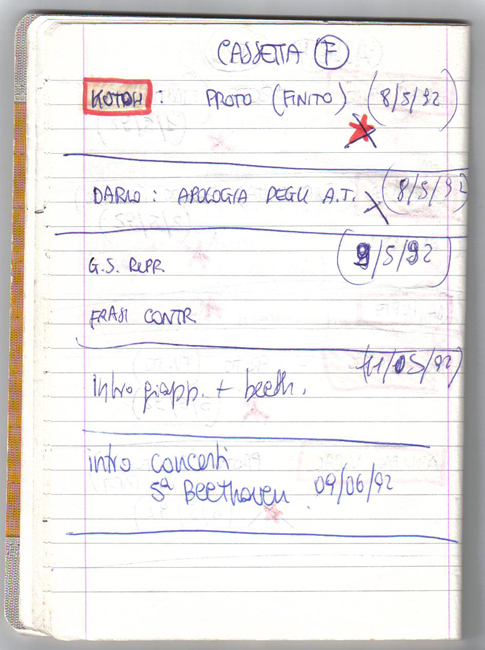 CASSETTA F
KOTOH : PROTO (FINITO) (8/5/92)
DARIO : APOLOGIA DEGLI A.T. (8/5/92)
(9/5/92)
G.S. REPR.
FRASI CONTR.
(11/05/92)
intro giapp. + beeth.
intro concerti
5ª BEETHOVEN 09/06/92